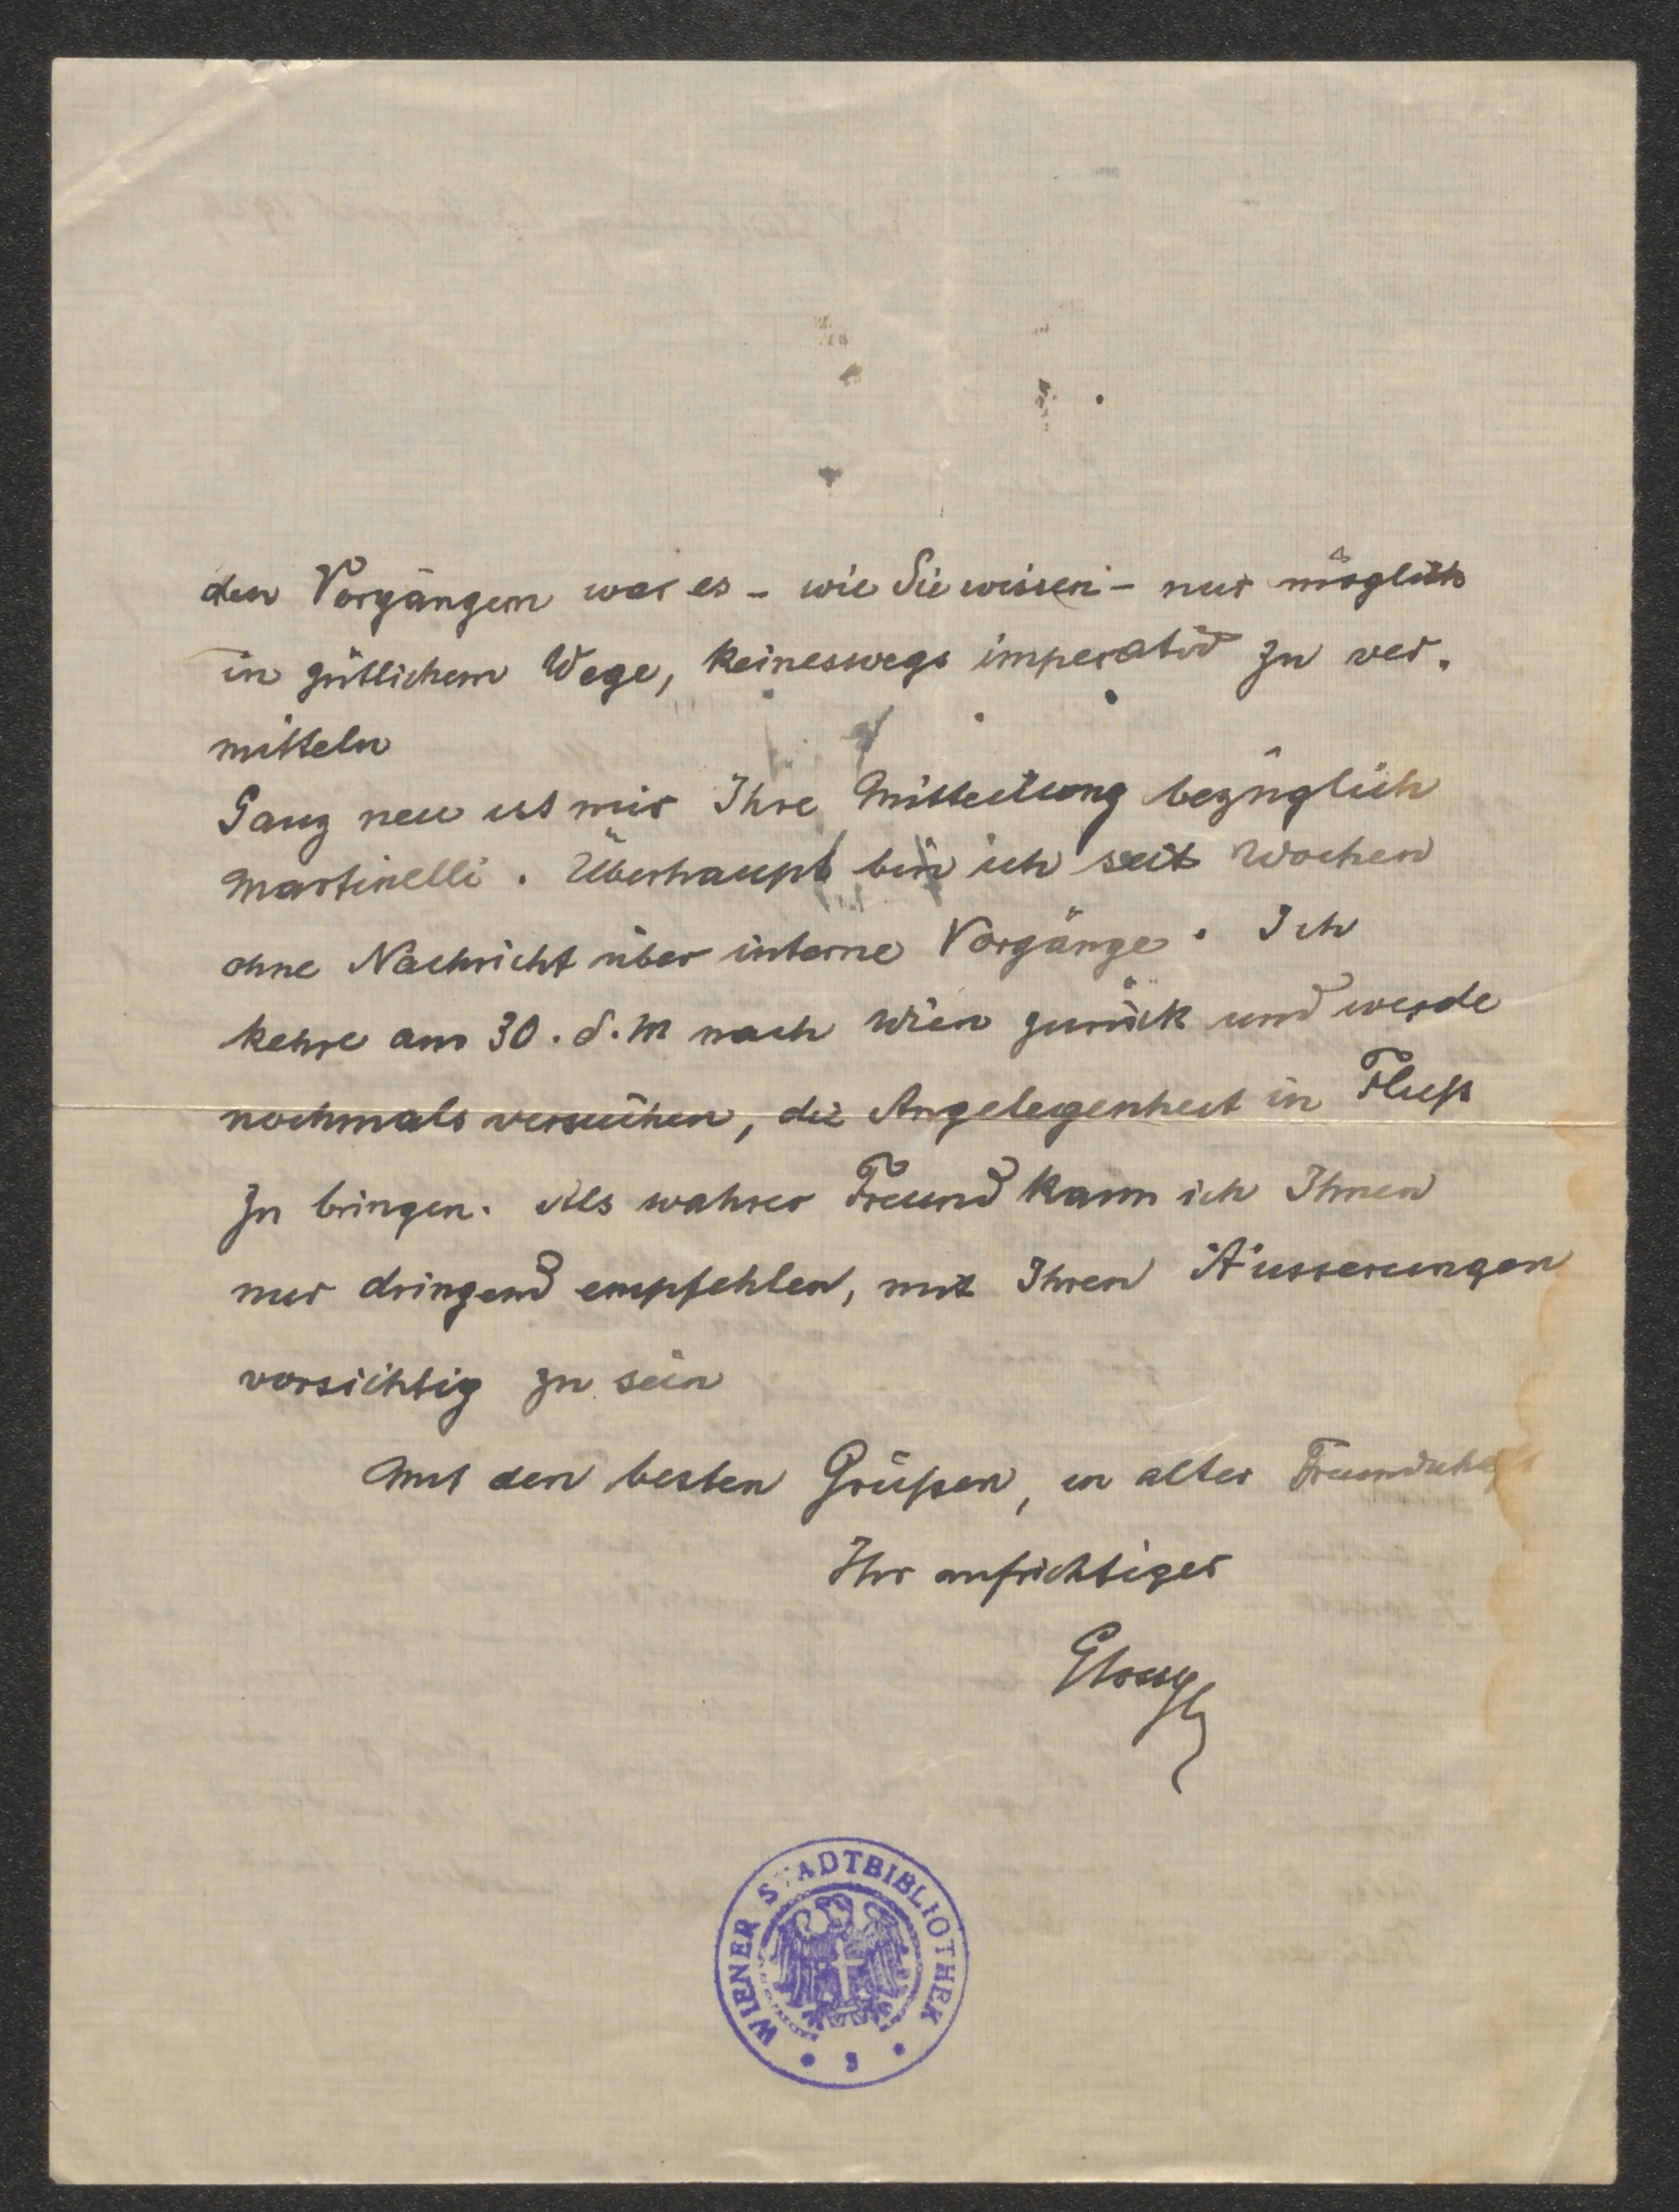 den Vorgängern war es – wie Sie wissen – nur möglich
in gütlichem Wege, keineswegs imperativ zu ver-
mitteln
Ganz neu ist mir Ihre Mitteilung bezüglich
Martinelli. Überhaupt bin ich seit Wochen
ohne Nachricht über interne Vorgänge. Ich
kehre am 30. d. M nach Wien zurück und werde
nochmals versuchen, die Angelegenheit in Fluß
zu bringen. Als wahrer Freund kann ich Ihnen
nur dringend empfehlen, mit Ihren Äusserungen
vorsichtig zu sein
Mit den besten Grüßen, in alter Freundschaft
Ihr aufrichtiger
Glossy
WIENER STADTBIBLIOTHEK